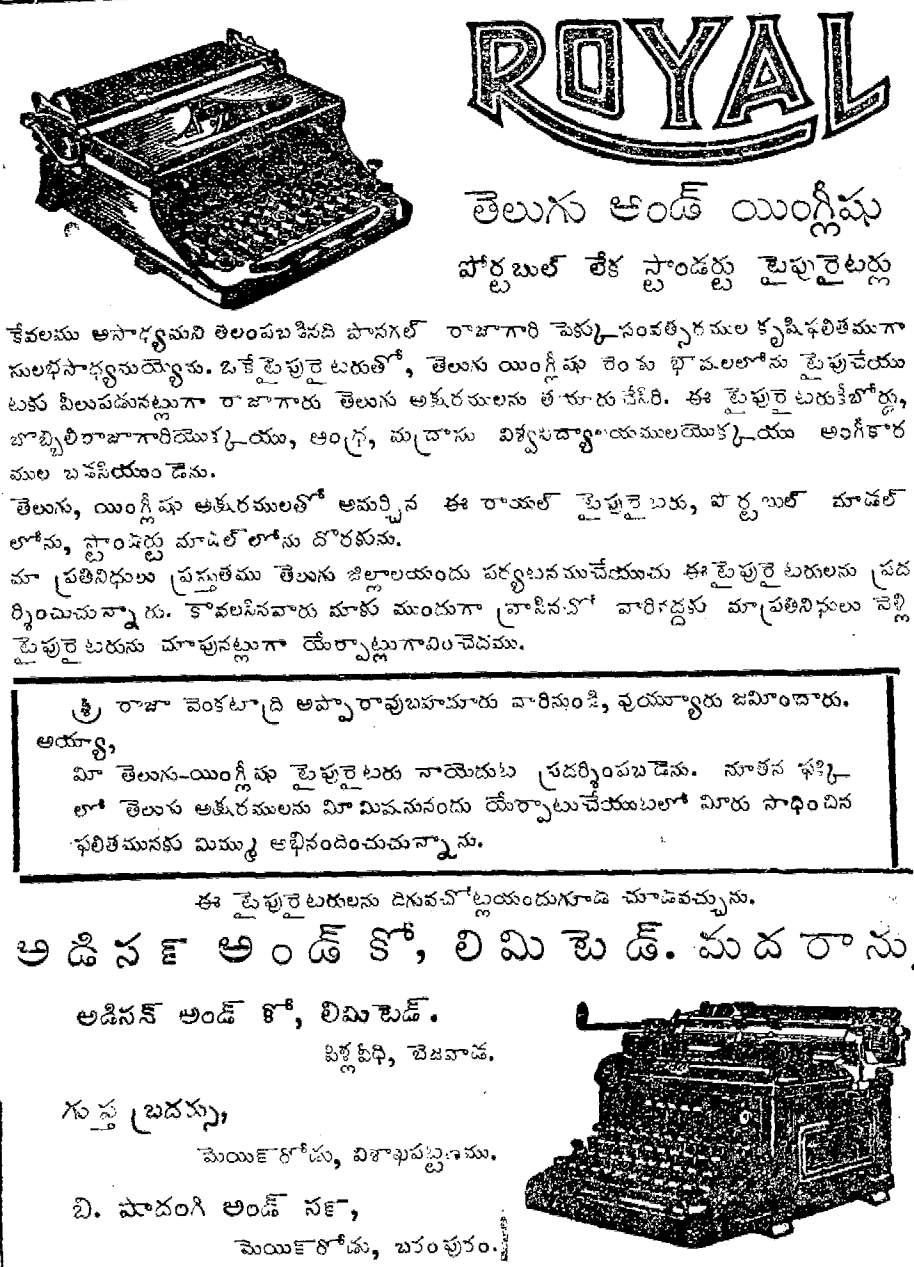 ROYAL
తెలుగు అండ్ యింగ్లీషు
పోర్టబుల్ లేక స్టాండర్డు టైపురైటర్లు
కేవలము అసాధ్యమని తలంపబడినది పానగల్ రాజాగారి పెక్కుసంవత్సరముల కృషిఫలితముగా
సులభసాధ్యమయ్యెను. ఒకేటైపురైటరుతో, తెలుగు యింగ్లీషు రెండు భాషలలోను టైపుచేయు
టకు వీలుపడునట్లుగా రాజాగారు తెలుగు అక్షరములను తయారుచేసిరి. ఈ టైపురైటరుకీబోర్డు,
బొబ్బిలిరాజాగారియొక్కయు, ఆంధ్ర, మద్రాసు విశ్వవిద్యాలయములయొక్కయు అంగీకార
ముల బడసియుండెను.
తెలుగు, యింగ్లీషు అక్షరములతో అమర్చిన ఈ రాయల్ టైపురైటరు, పోర్టబుల్ మాడల్
లోను, స్టాండర్డు మాడల్‌లోను దొరకును.
మా ప్రతినిధులు ప్రస్తుతము తెలుగు జిల్లాలయందు పర్యటనముచేయుచు ఈటైపురైటరులను ప్రద
ర్శించుచున్నారు. కావలసినవారు మాకు ముందుగా వ్రాసినచో వారివద్దకు మాప్రతినిధులు వెళ్లి
టైపురైటరును చూపునట్లుగా యేర్పాట్లుగావించెదము.
శ్రీ రాజా వెంకటాద్రి అప్పారావుబహదూరు వారినుండి, వుయ్యూరు జమీందారు.
అయ్యా,
మీ తెలుగు-యింగ్లీషు టైపురైటరు నాయెదుట ప్రదర్శింపబడెను. నూతన ఫక్కి
లో తెలుగు అక్షరములను మీమిషనునందు యేర్పాటుచేయుటలో మీరు సాధించిన
ఫలితమునకు మిమ్ము అభినందించుచున్నాను.
ఈ టైపురైటరులను దిగువచోట్లయందుగూడ చూడవచ్చును.
అడిసన్ అండ్ కో, లిమిటెడ్. మదరాసు.
అడిసన్ అండ్ కో, లిమిటెడ్.
పిళ్లవీధి, బెజవాడ.
గుప్త బ్రదర్సు,
మెయిన్‌రోడు, విశాఖపట్టణము.
బి. పాదంగి అండ్ సన్,
మెయిన్‌రోడు, బరంపురం.